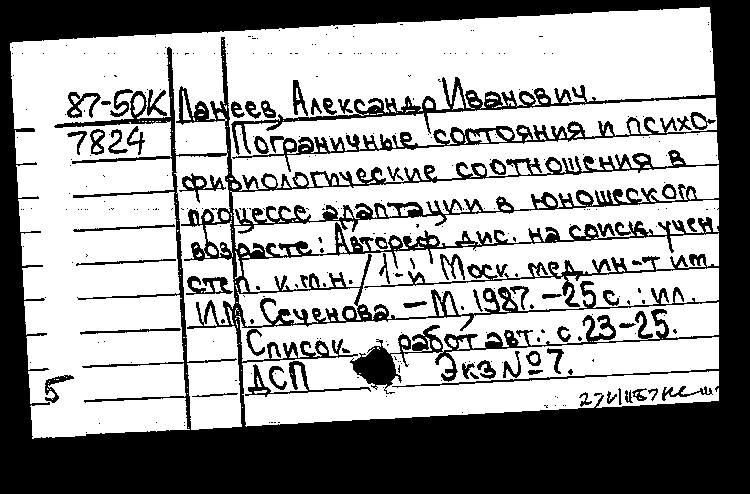 87-50К Ланеев, Александр Иванович.
7824 Пограничные состояния и психо-
физиологические соотношения в
процессе адаптации в юношеском
возрасте: Автореф. дис. на соиск. учен.
степ. к.м.н. / 1-й Моск. мед. ин-т им.
И.М. Сеченова. – М., 1987. – 25 с. : ил.
Список работ авт.: с. 23-25.
5 ДСП Экз № 7.